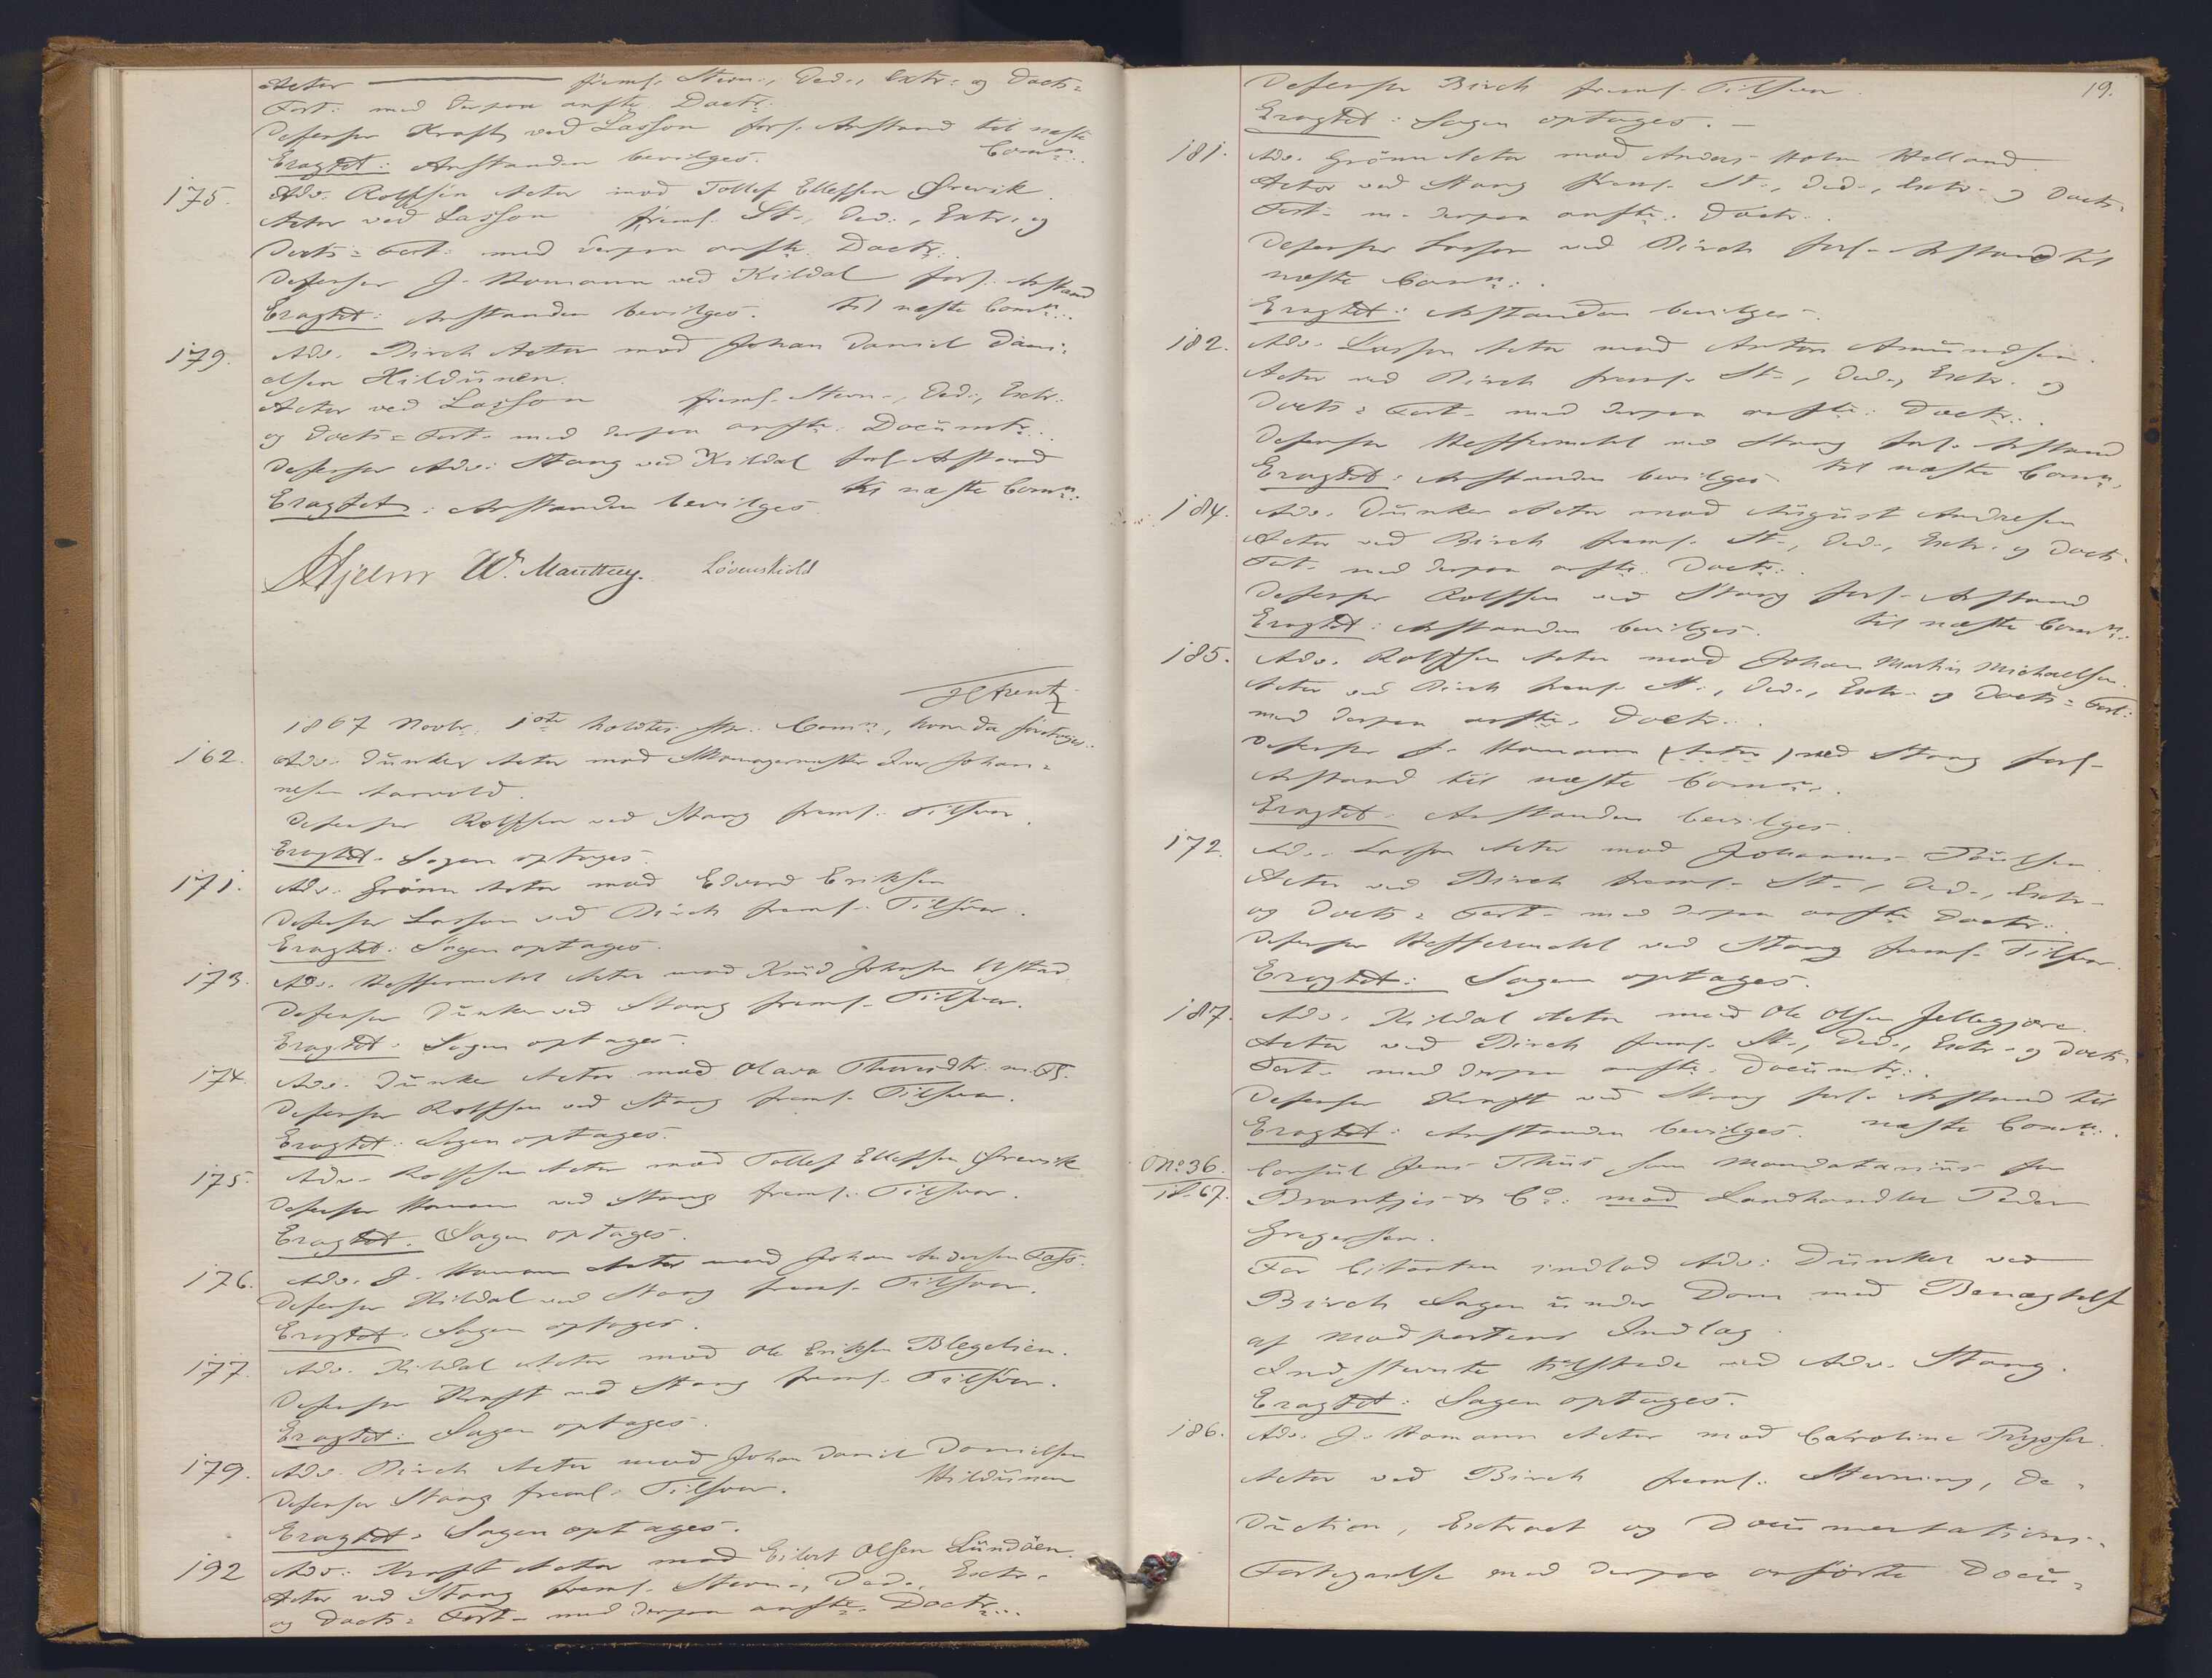 Actor ——— freml. Stevn., Ded., Extr. og Docts=
Fort: med derpaa anfte. Doctr.
Defensor Kraft ved Lasson forl. Anstand til næste
Eragtet: Anstanden bevilges. Comn:.
175. Adv. Rolfsen Actor mod Tollef Ellefsen Ørevik.
Actor ved Lasson freml. St., Ded., Extr. og
Docts= Fort. med derpaa anfte. Doctr:.
Defensor J. Homann ved Kildal forl. Anstand
Eragtet: Anstanden bevilges. til næste Comn:.
179. Adv. Birch Actor mod Johan Daniel Dani=
elsen Hildünen.
Actor ved Lasson freml. Stevn., Ded., Extr.
og Docts= Fort. med derpaa anfte. Documtr:.
Defensor Adv: Stang ved Kildal forl. Anstand
Eragtet: Anstanden bevilges. til næste Comn:.
Hjelm W. Manthey. Løvenskiold
1867 Novbr. 1ste holdtes Comn:, hvor da foretoges:
162. Adv. Dunker Actor mod Iver Johan=
nesen Aarvold.
Defensor Rolfsen ved Stang freml. Tilsvar.
Eragtet. Sagen optages.
171. Adv. Grönn Actor mod Edvard Eriksen
Defensor Lasson ved Birch freml. Tilsvar.
Eragtet: Sagen optages.
173. Adv. Heffermehl Actor mod Knud Johnsen Ystad.
Defensor Dunker ved Stang freml. Tilsvar.
Eragtet: Sagen optages.
174. Adv. Dunker Actor mod Olava m. Fl.
Defensor Rolfsen ved Stang freml. Tilsvar.
Eragtet: Sagen optages.
175. Adv. Rolfsen Actor mod Tollef Ellefsen Ørevik
Defensor Homann ved Stang freml. Tilsvar.
Eragtet. Sagen optages.
176. Adv. J. Homann Actor mod Johan Andersen
Defensor Kildal ved Stang freml. Tilsvar.
Eragtet. Sagen optages.
177. Adv. Kildal Actor mod Ole Eriksen Blegelien.
Defensor Kraft ved Stang freml. Tilsvar.
Eragtet: Sagen optages.
179. Adv. Birch Actor mod Johan Daniel Danielsen
Hildünen
Defensor Stang freml. Tilsvar.
Eragtet. Sagen optages.
192 Adv: Kraft Actor mod Eilert Olsen Lundöen.
Actor ved Stang freml. Stevn., Ded., Extr.
og Docts= Fort. med derpaa anfte. Doctr:.
19.
Defensor Birch freml. Tilsvar.
Eragtet: Sagen optages. —
181. Adv. Grönn Actor mod Anders Holm Holland.
Actor ved Stang freml. St., Ded., Extr. og Docts=
Fort. m. derpaa anfte. Doctr:.
Defensor Lasson ved Birch forl. Anstand til
næste Comn:.
Eragtet: Anstanden bevilges.
182. Adv. Lasson Actor mod Anton Amundsen.
Actor ved Birch freml. St., Ded., Extr. og
Docts= Fort. med derpaa anfte. Doctr:.
Defensor Heffermehl ved Stang forl. Anstand
Eragtet: Anstanden bevilges til næste Comn:.
184. Adv. Dunker Actor mod August Andresen
Actor ved Birch freml. St., Ded., Extr. og Docts=
Fort. med derpaa anfte. Doctr:.
Defensor Rolfsen ved Stang forl. Anstand
Eragtet: Anstanden bevilges. til næste Comn:.
185. Adv. Rolfsen Actor mod Johan Martin Michaelsen.
Actor ved Birch freml. St., Ded., Extr. og Docts= Fort:
med derpaa anfte. Doctr:.
Defensor J. Homann (Actor) ved Stang forl.
Anstand til næste Comn:.
Eragtet. Anstanden bevilges.
172. Adv. Lasson Actor mod Johannes Poulsen
Actor ved Birch freml. St., Ded., Extr.
og Docts= Fort. med derpaa anfte Doctr:.
Defensor Heffermehl ved Stang freml. Tilsvar.
Eragtet: Sagen optages.
187. Adv. Kildal Actor mod Ole Olsen Jellegjære.
Actor ved Birch freml. St., Ded., Extr. og Docts=
Fort. med derpaa anfte. Documtr:.
Defensor Kraft ved Stang forl. Anstand til
Eragtet: Anstanden bevilges. næste Comn:.
No. 36. Consul Jens Thiis som Mandatarius for
67. Brantjes & Co: mod Landhandler Peder
Gregersen.
For Citanten indlod Adv: Dunker ved
Birch Sagen under Dom med Benægtelse
af Modpartens Indlæg.
Indstevnte tilstede ved Adv. Stang.
Eragtet: Sagen optages.
186. Adv. J. Homann Actor mod Cathrine Prysser.
Actor ved Birch freml. Stevning, De=
duction, Extract og Documentations=
Fortegnelse med derpaa anførte Docu=